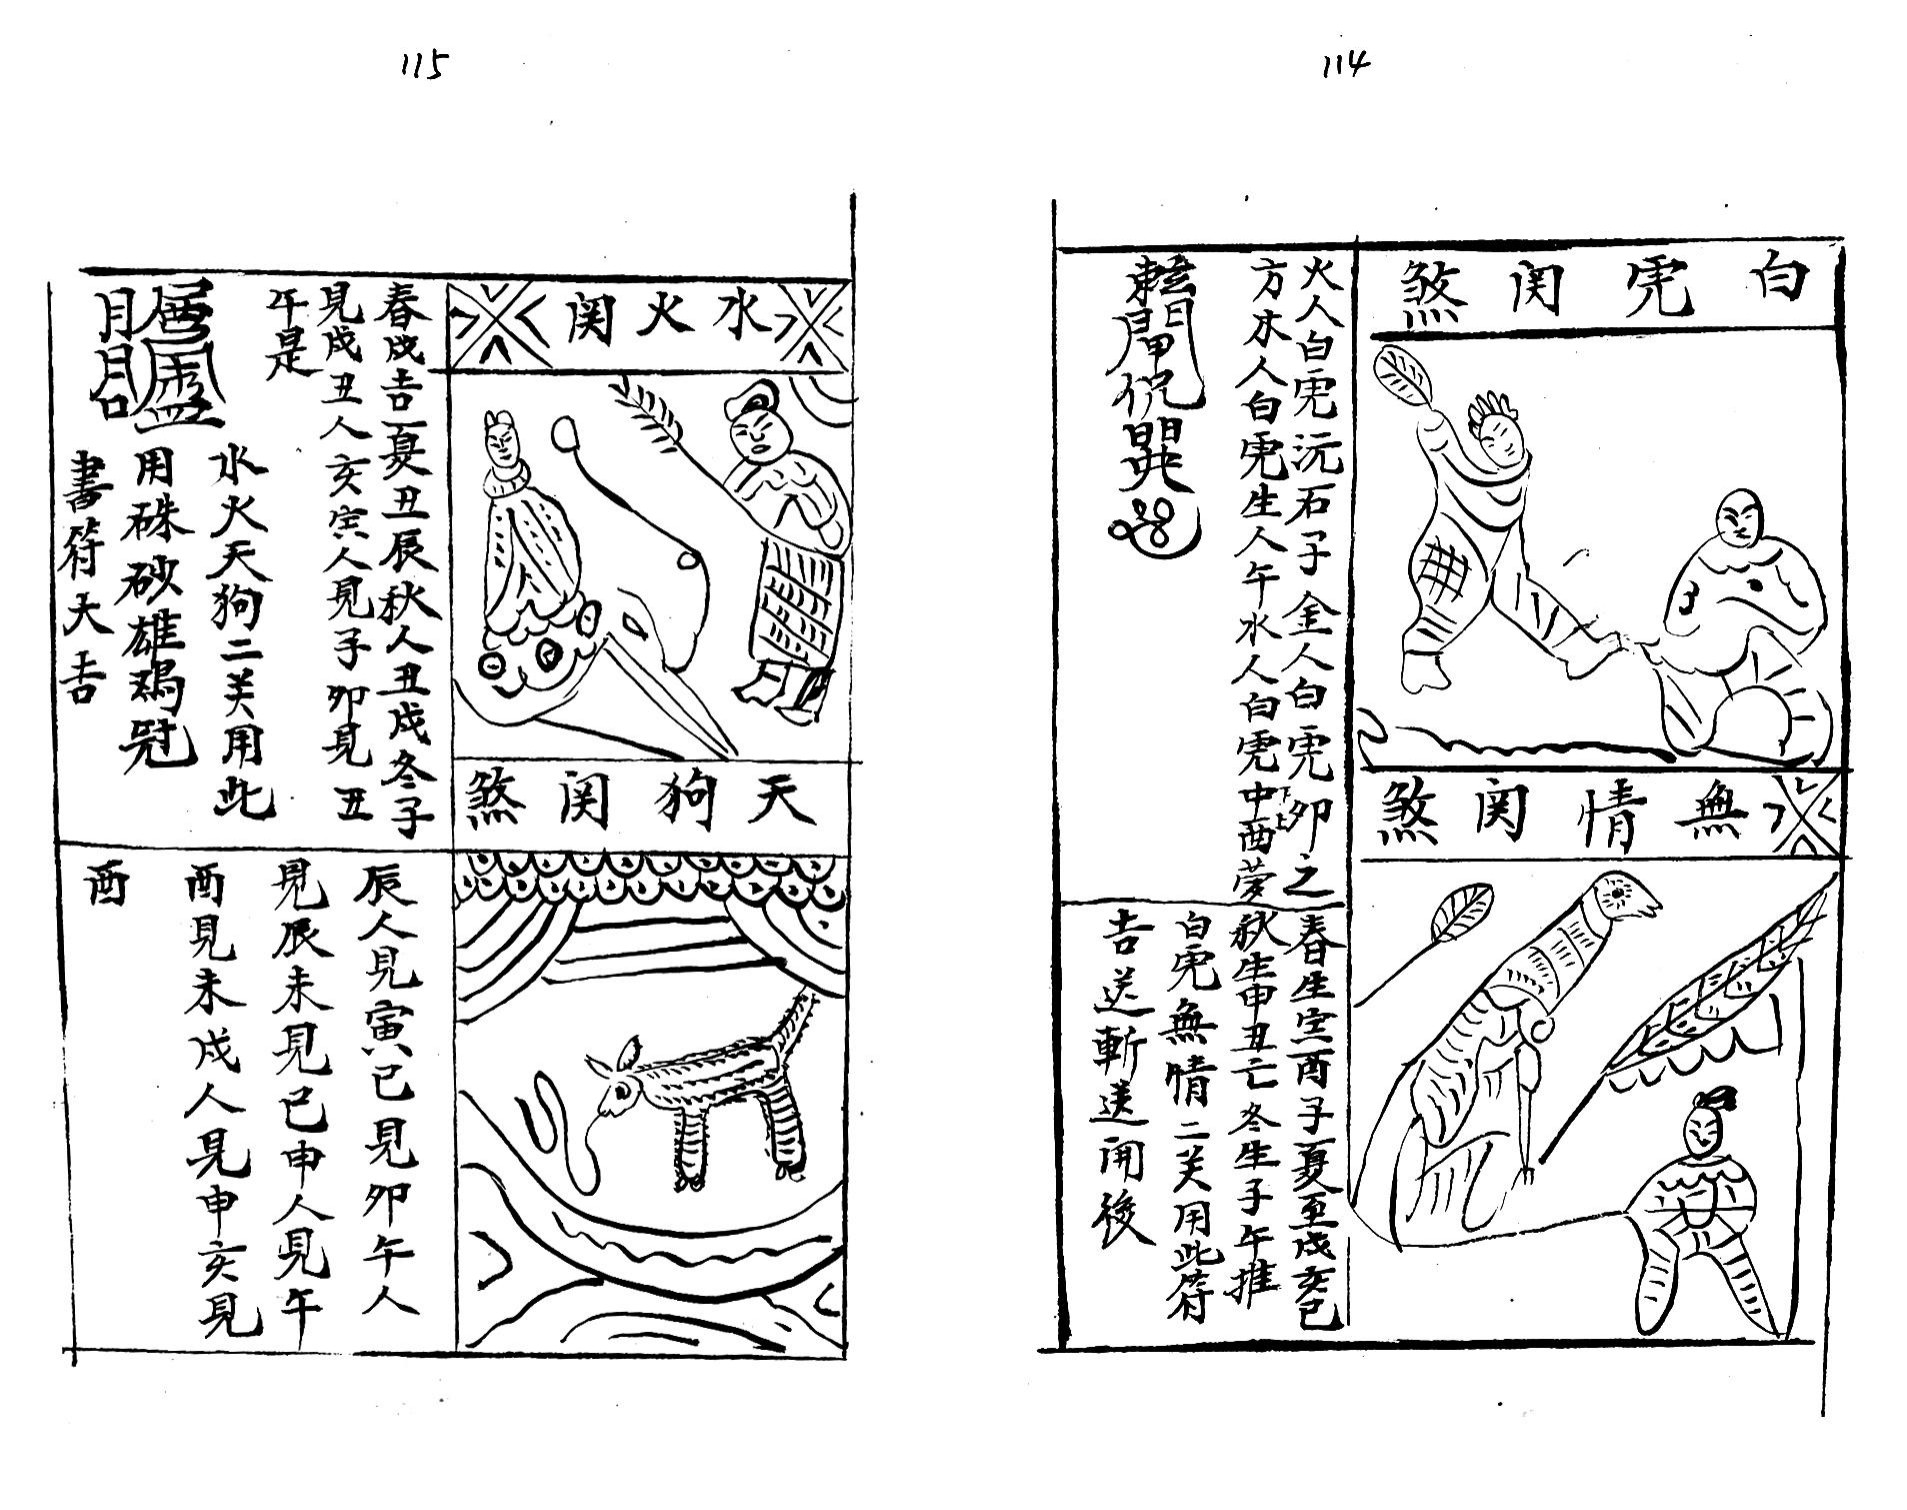 114
白虎関煞
火人白虎沅石子金人白虎卯之
方木人白虎生人午水人白虎中酉
無情関煞
春生寅酉子夏至戌亥巳
秋生申丑亡冬生子午推
白虎無情二关用此符
吉送斬送開後
115
水火関
春戌吉夏丑辰秋人丑戌冬子
見戌丑人亥寅人見子卯見丑
午是
水火天狗二关用此
用硃砂雄鳮冠
書符大吉
天狗関煞
辰人見寅巳見卯午人
見辰未見巳申人見午
酉見未戌人見申亥見
酉